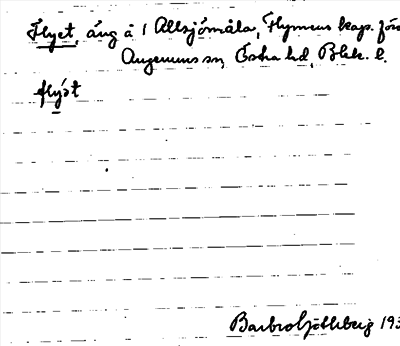 Flyet, äng å 1 Allsjömåla, Flymens kap. förs
Augerums sn, Östra hd, Blek. l.
flýət
Barbro Sjöbberg 193